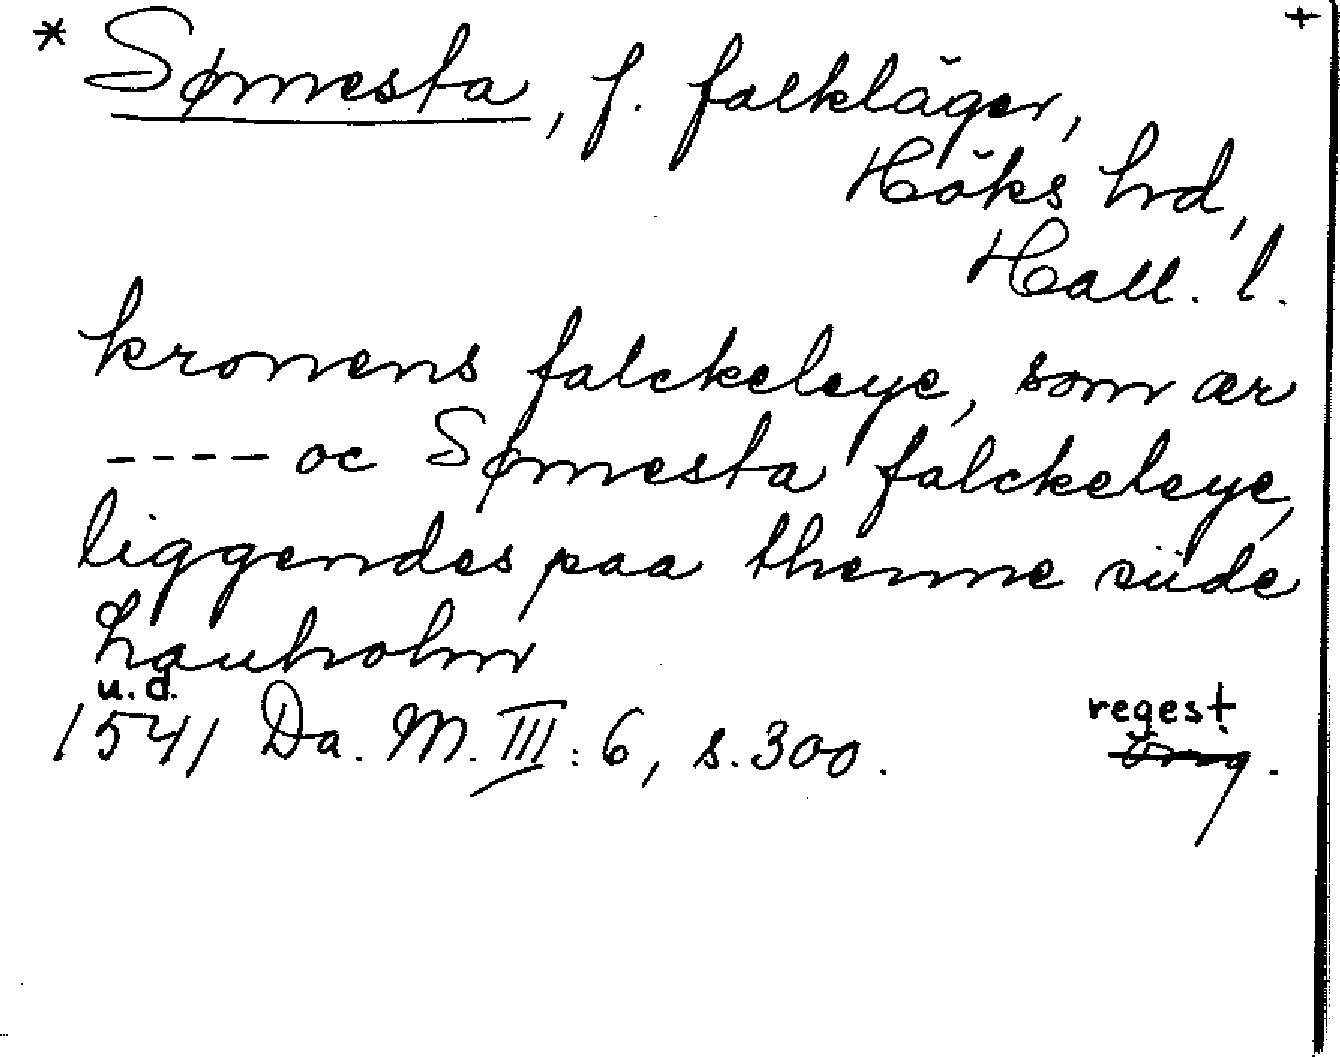 * Sømesta, f. falkläger, +
Höks hrd,
Hall. l.
kronens falckeleye, som ær
---- oc Sømesta falckeleye,
liggendes paa thenne siide
Lauholm
u.d.
1541 Da. M. III: 6, s. 300. regest